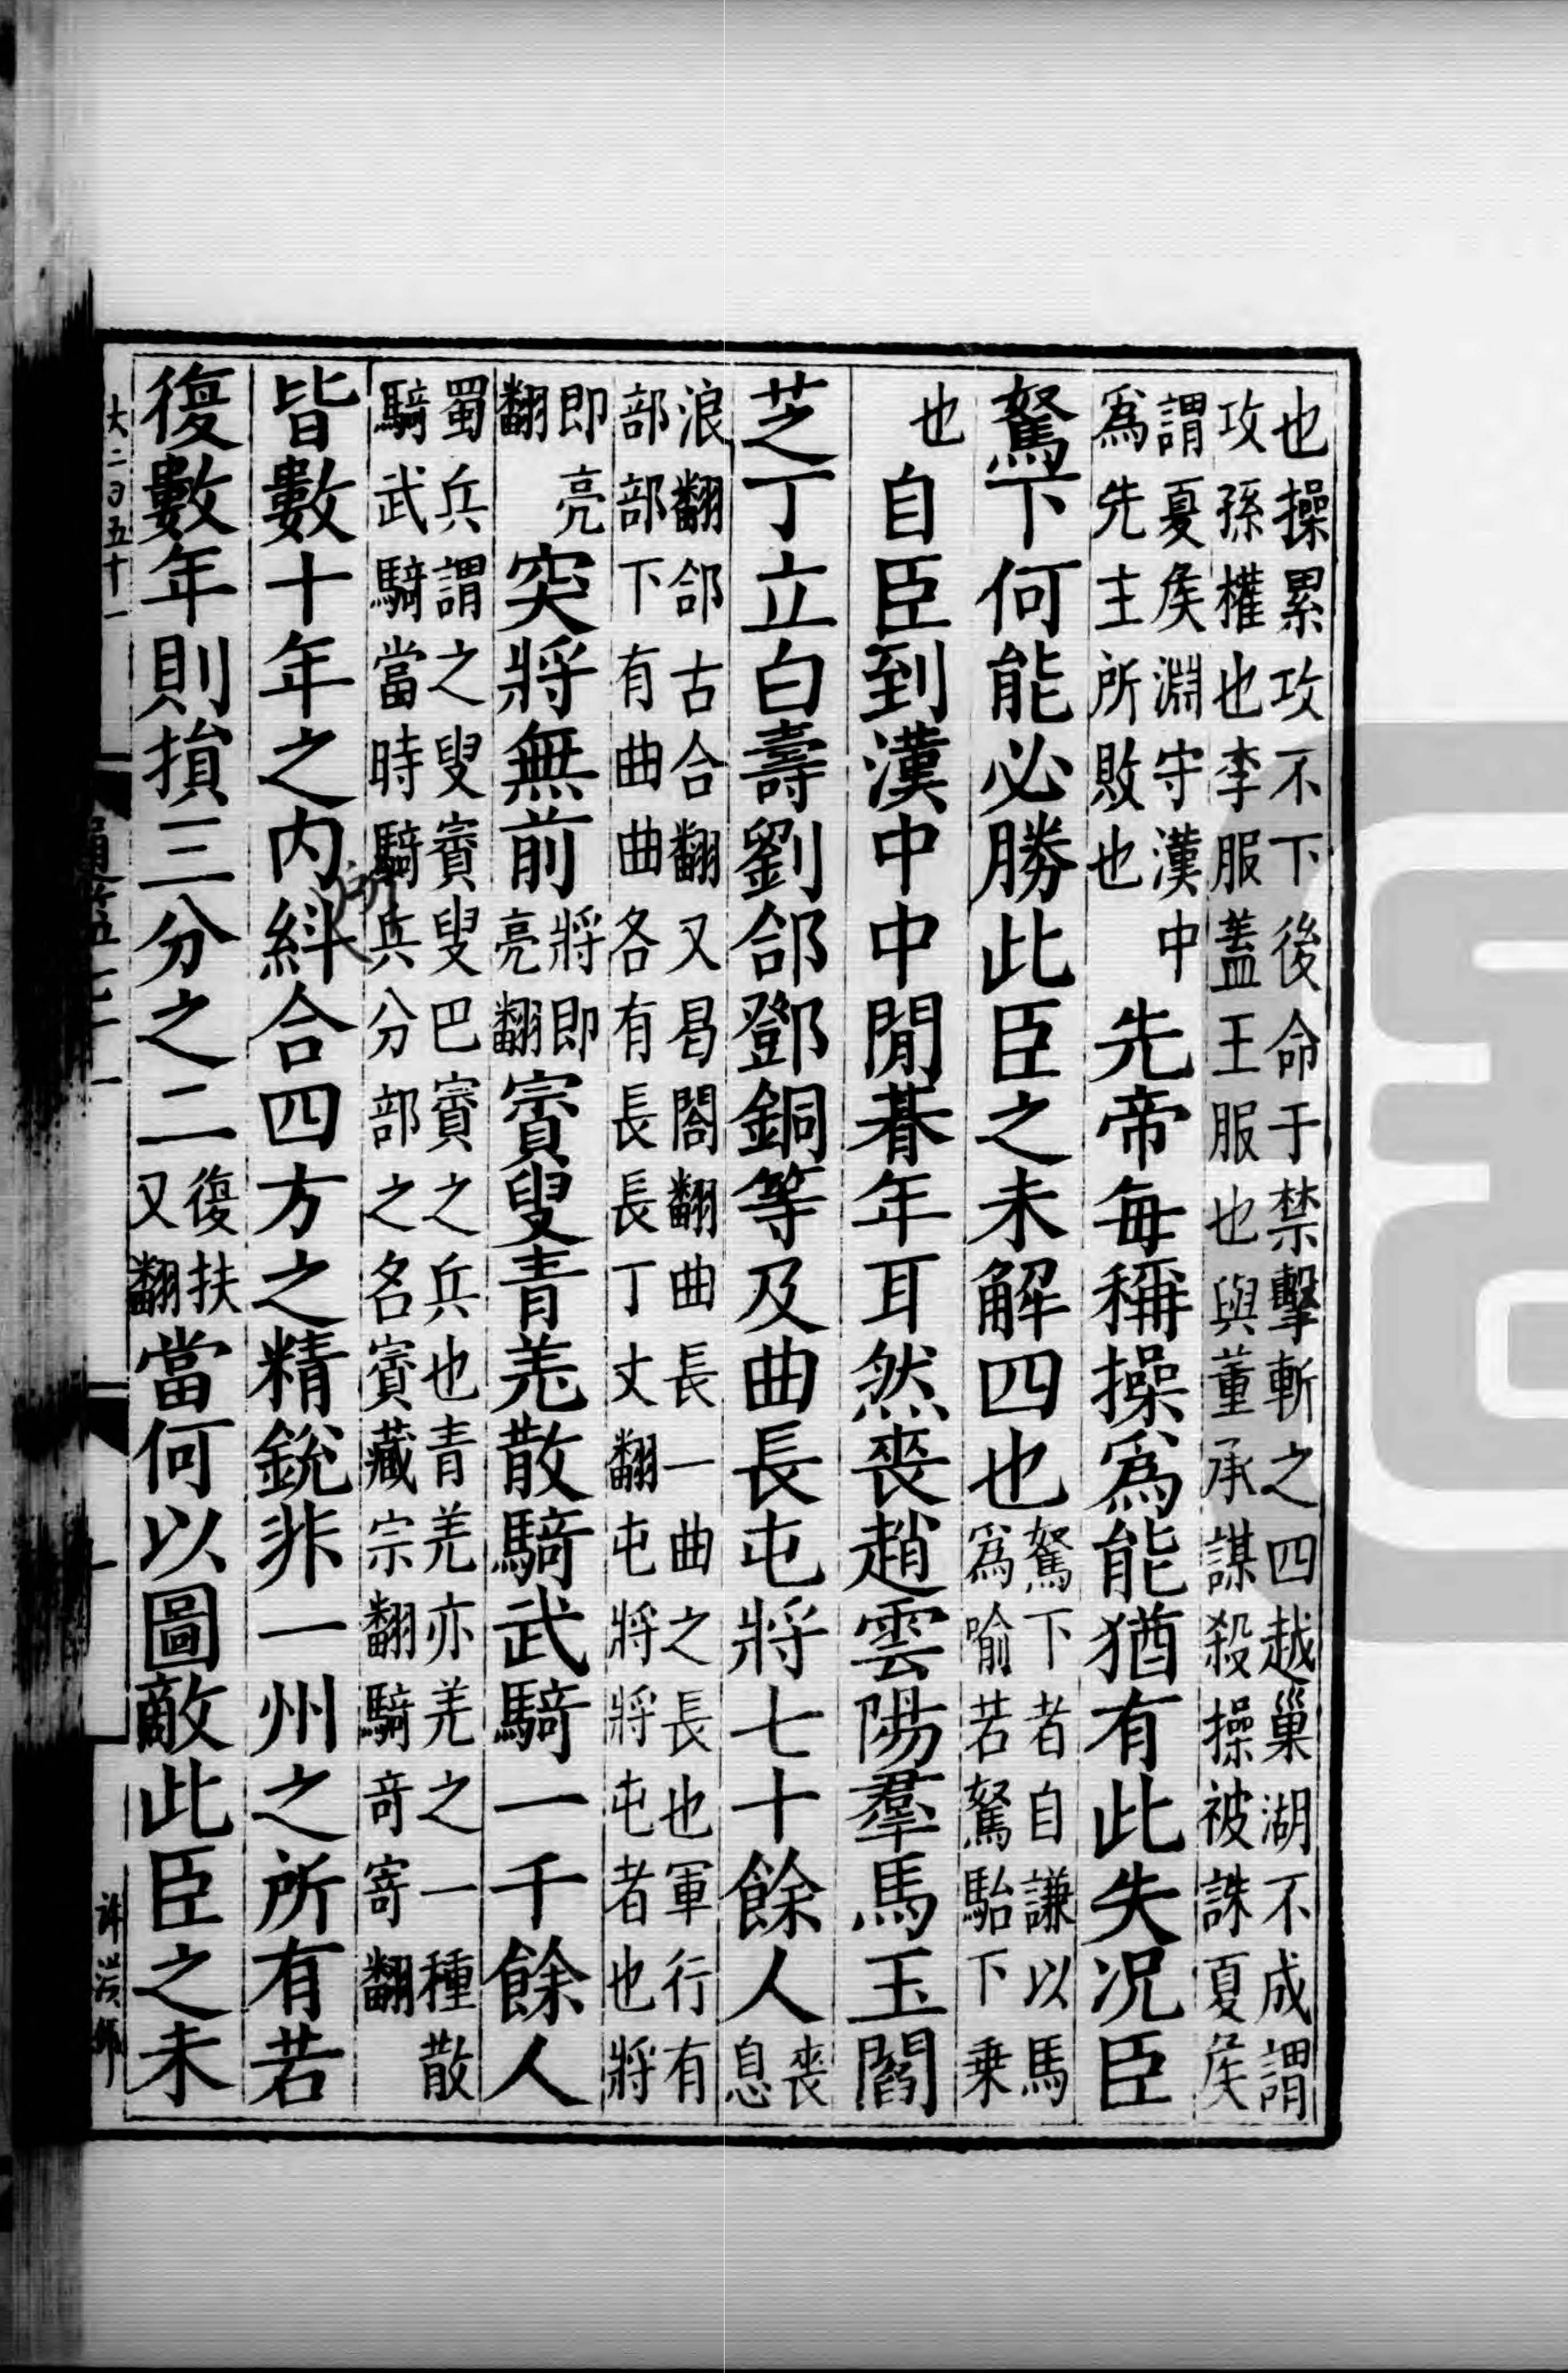 也操累攻不下後命于禁擊斬之四越巢湖不成謂
攻孫權也李服蓋王服也與董承謀殺操被誅夏侯
謂夏侯淵守漢中
爲先主所敗也
先帝每稱操爲能猶有此失况臣
駑下何能必勝此臣之未解四也
駑下者自謙以馬
爲喻若駑駘下乗
也
自臣到漢中中閒朞年耳然喪趙雲陽羣馬玉閻
芝丁立白壽劉郃鄧銅等及曲長屯將七十餘人
喪
息
浪翻郃古合翻又曷閤翻曲長一曲之長也軍行有
部部下有曲曲各有長長丁丈翻屯將將屯者也將
即亮
翻
突將無前
將即
亮翻
賨叟青羌散騎武騎一千餘人
蜀兵謂之叟賨叟巴賨之兵也青羌亦羌之一種散
騎武騎當時騎兵分部之名賨藏宗翻騎奇寄翻
皆數十年之内糾合四方之精銳非一州之所有若
復數年則損三分之二
復扶
又翻
當何以圖敵此臣之未
大二百五十一